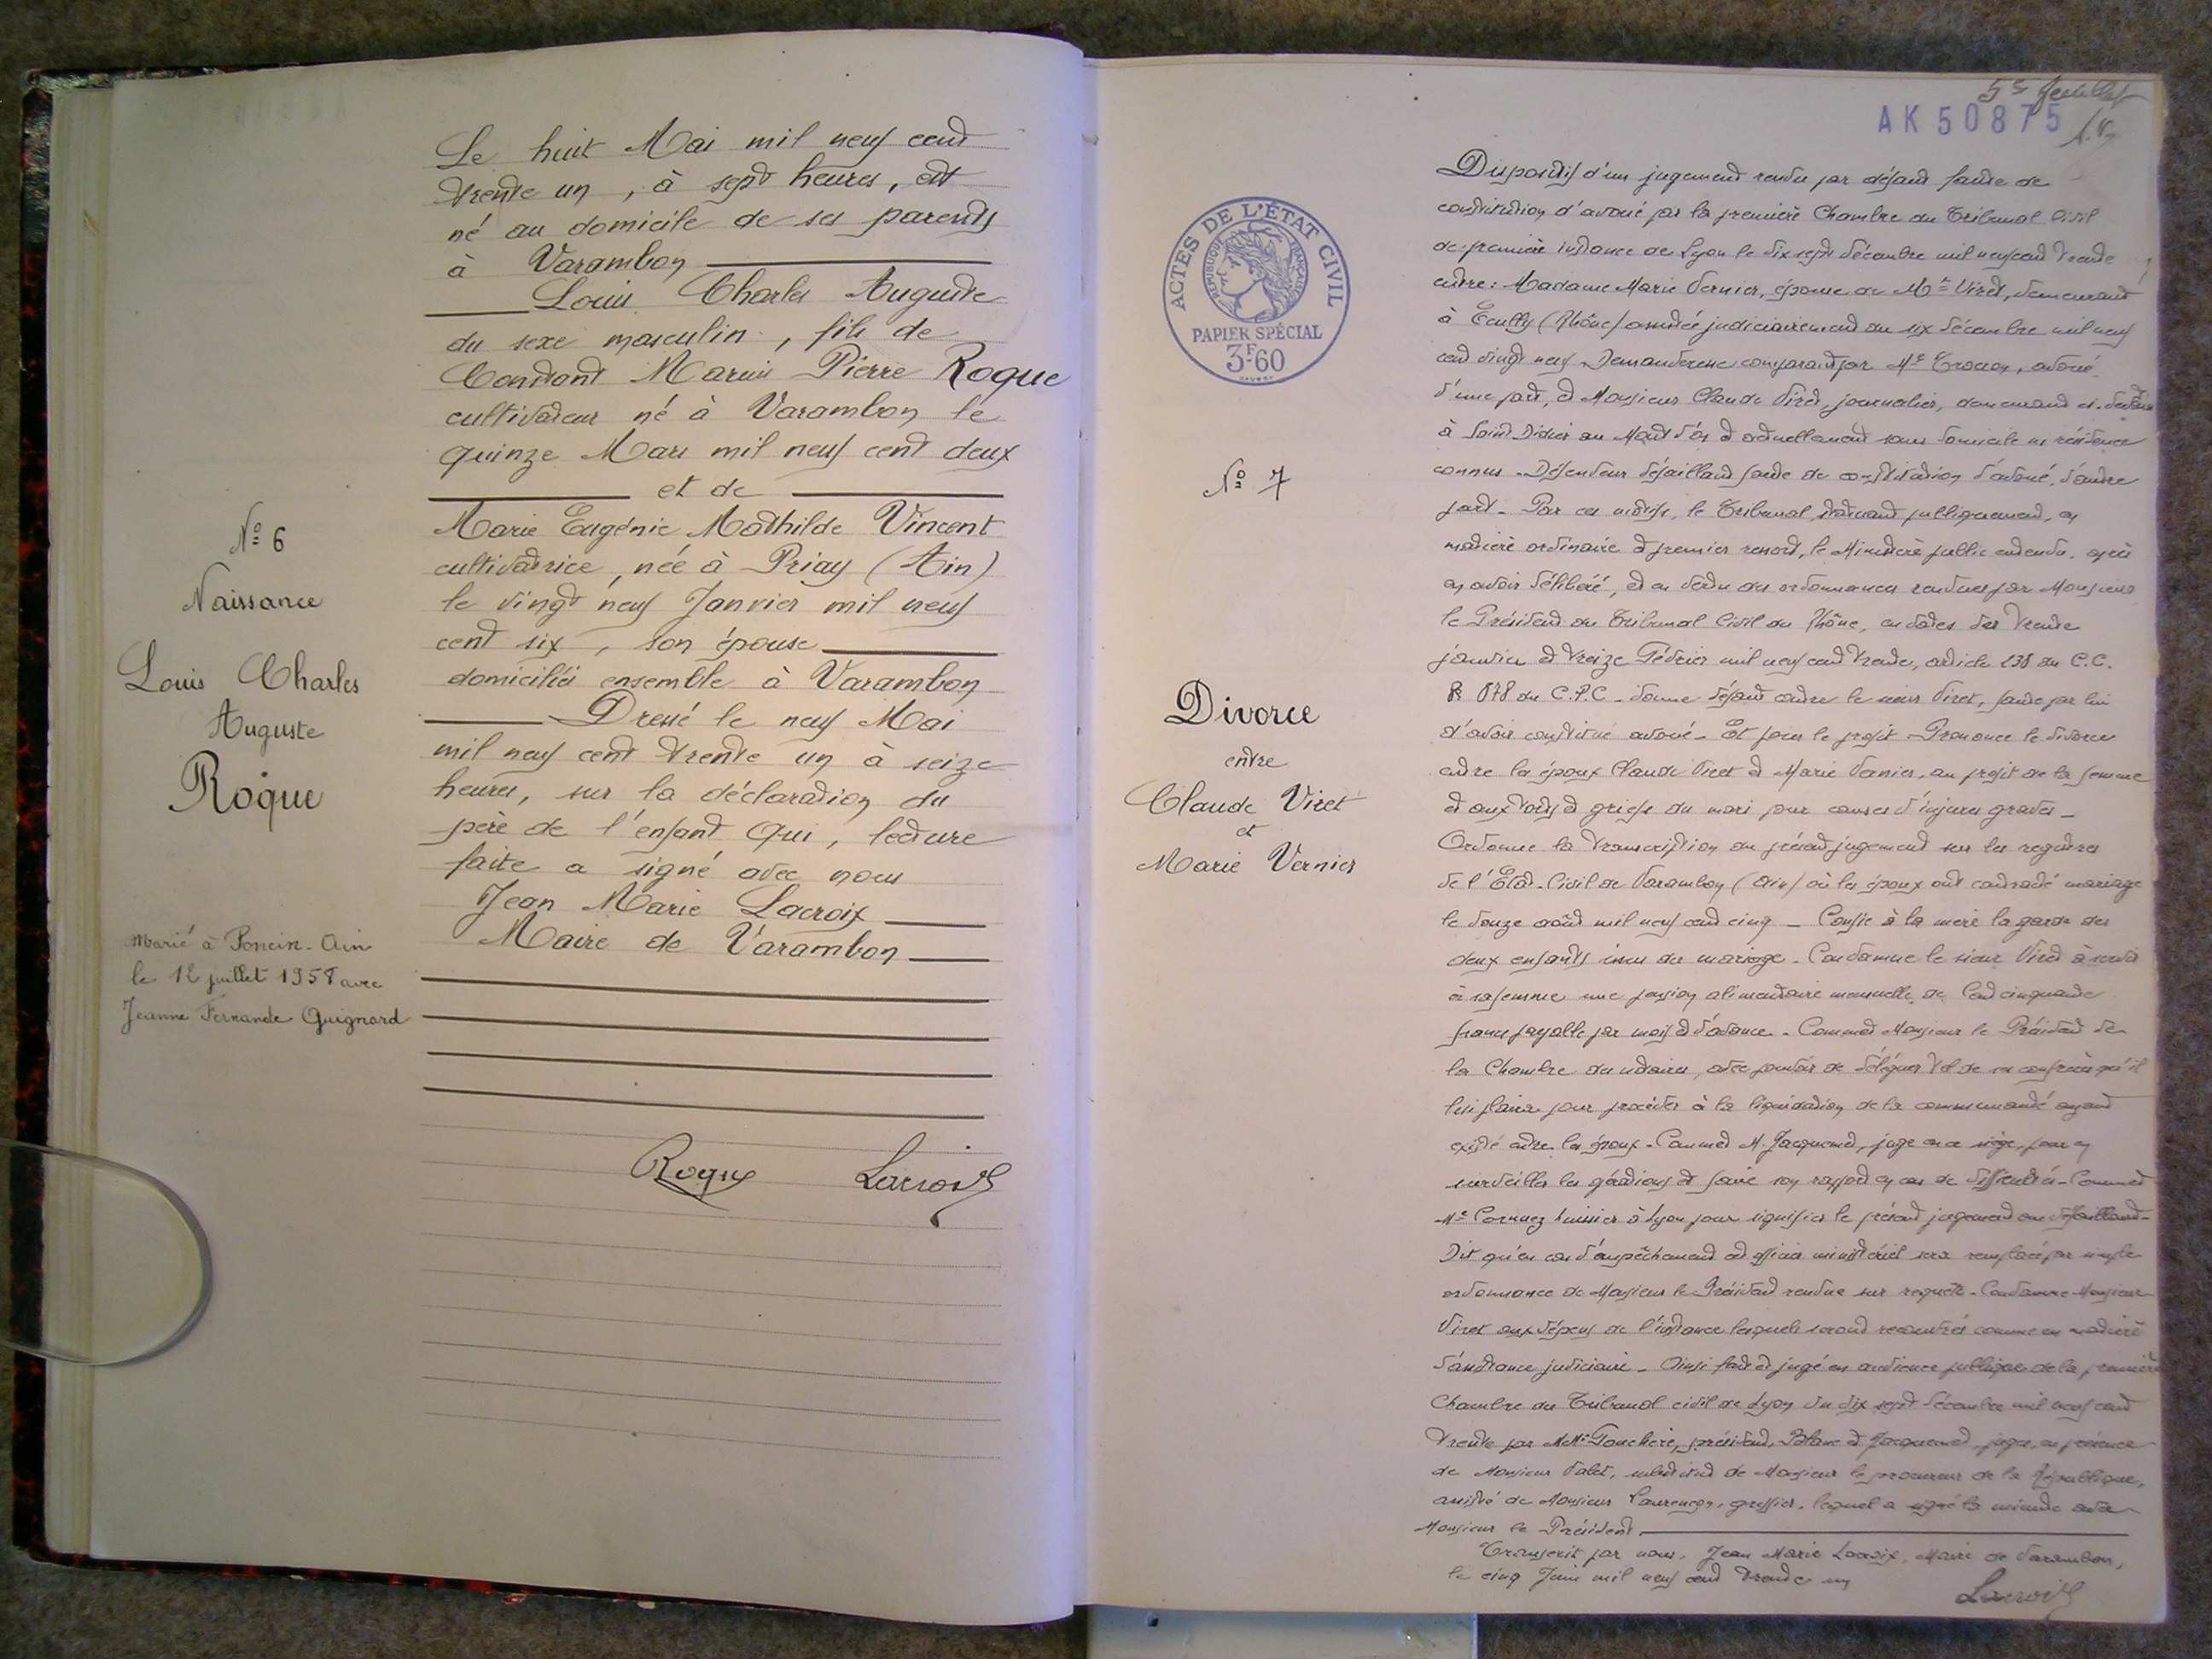 Le huit Mai mil neuf cent
trente un, à sept heures, est
né au domicile de ses parents
à Varambon
Louis Charles Auguste
du sexe masculin, fils de
Constant Marius Pierre Roque
cultivateur né à Varambon le
quinze Mars mil neuf cent deux
et de
Marie Eugénie Mathilde Vincent
cultivatrice, née à Priay (Ain)
le vingt neuf Janvier mil neuf
cent six, son épouse
domiciliés ensemble à Varambon
Dressé le neuf Mai
mil neuf cent trente un à seize
heures, sur la déclaration du
père de l'enfant qui, lecture
faite a signé avec nous
Jean Marie Lacroix
Maire de Varambon
Roque Lacroix
Nº 6
Naissance
Louis Charles
Auguste
Roque
Marié à Poncin-Ain
le 12 juillet 1958 avec
Jeanne Fernande Guignard
5e feuillet
AK 50875
ACTES DE L'ÉTAT CIVIL
RÉPUBLIQUE FRANÇAISE
PAPIER SPÉCIAL
3F.60
Nº 7
Divorce
entre
Claude Viret
et
Marie Vernier
Dispositif d'un jugement rendu par défaut faute de
constitution d'avoué par la première Chambre du Tribunal Civil
de première instance de Lyon le dix sept décembre mil neuf cent trente
entre: Madame Marie Vernier, épouse de Mr Viret, demeurant
à Ecully (Rhône) assistée judiciairement du six décembre mil neuf
cent vingt neuf Demanderesse comparant par Me avoué
d'une part, et Monsieur Claude Viret, journalier, demeurant ci-devant
à Saint Didier au Mont d'Or et actuellement sans domicile ni résidence
connus - Défendeur défaillant faute de constitution d'avoué, d'autre
part - Par ces motifs, le Tribunal, statuant publiquement, en
matière ordinaire et premier ressort, le Ministère public entendu, après
en avoir délibéré, et en vertu des ordonnances rendues par Monsieur
le Président du Tribunal Civil du Rhône, en dates des trente
janvier et treize Février mil neuf cent trente, article 238 du C.C.
& 878 du C.P.C - donne défaut contre le sieur Viret, faute par lui
d'avoir constitué avoué - Et pour le profit - Prononce le divorce
entre les époux Claude Viret et Marie Vernier, au profit de la femme
et aux torts et griefs du mari pour causes d'injures graves -
Ordonne la transcription du présent jugement sur les registres
de l'Etat-Civil de Varambon (Ain) où les époux ont contracté mariage
le douze août mil neuf cent cinq - Confie à la mère la garde des
deux enfants issus du mariage - Condamne le sieur Viret à servir
à sa femme une pension alimentaire mensuelle de Cent cinquante
francs payable par mois et d'avance - Commet Monsieur le Président de
la Chambre des notaires, avec pouvoir de déléguer tel de ses confrères qu'il
lui plaira pour procéder à la liquidation de la communauté ayant
existé entre les époux - Commet M. Jacquemet, juge en ce siège, pour en
surveiller les opérations et faire son rapport en cas de difficultés - Commet
Me Cornuez huissier à Lyon pour signifier le présent jugement au défaillant -
Dit qu'en cas d'empêchement cet officier ministériel sera remplacé par simple
ordonnance de Monsieur le Président rendue sur requête - Condamne Monsieur
Viret aux dépens de l'instance lesquels seront recouvrés comme en matière
d'assistance judiciaire - Ainsi fait et jugé en audience publique de la première
Chambre du Tribunal civil de Lyon du dix sept décembre mil neuf cent
trente par MMrs président, Blanc et Jacquemet, juges, en présence
de Monsieur Valet, substitut de Monsieur le procureur de la République,
assisté de Monsieur greffier, lequel a signé la minute avec
Monsieur le Président
Transcrit par nous, Jean Marie Lacroix, Maire de Varambon,
le cinq Juin mil neuf cent trente un
Lacroix